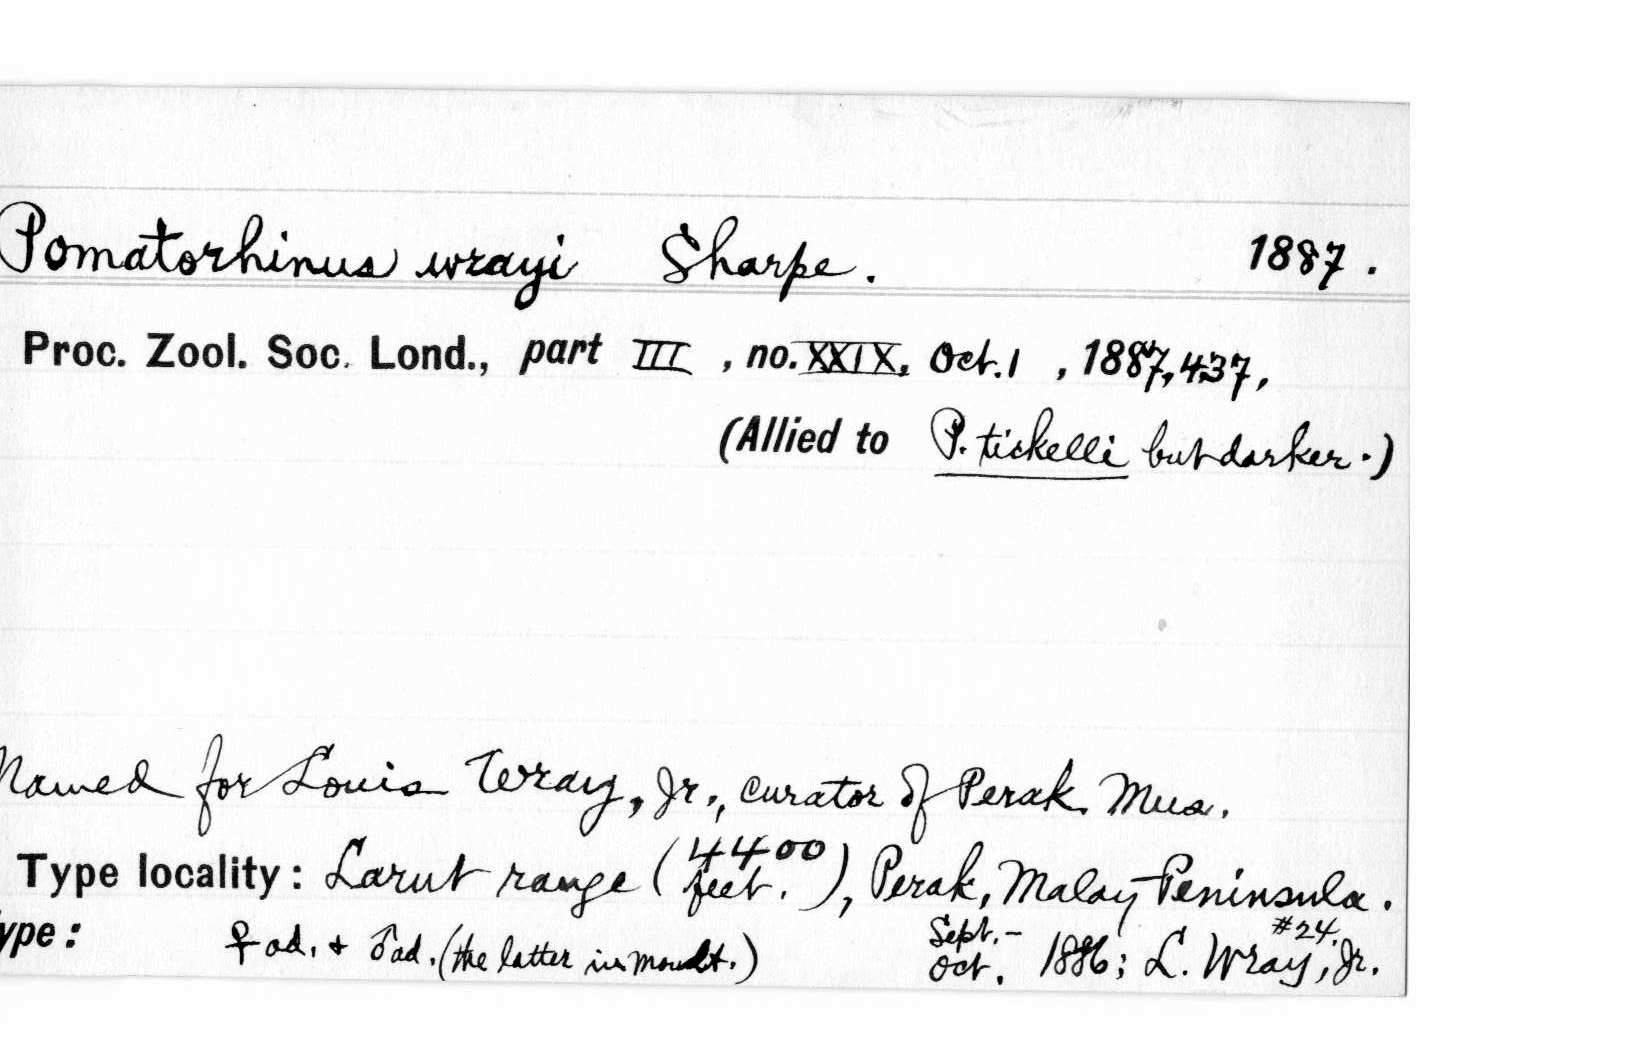 Pomatorhinus wrayi Sharpe. 1887.
Proc. Zool. Soc. Lond., part III, no. XXIX, Oct. 1, 1887, 437,
(Allied to P. tickelli but darker.)
Named for Louis Wray, Jr., curator of Perak Mus.
Type locality: Larut range (4400 feet.), Perak, Malay Peninsula.
ype: ♀ ad. + ♂ ad. (the latter in moult.) Sept.-Oct. 1886; L. Wray, Jr. #24.